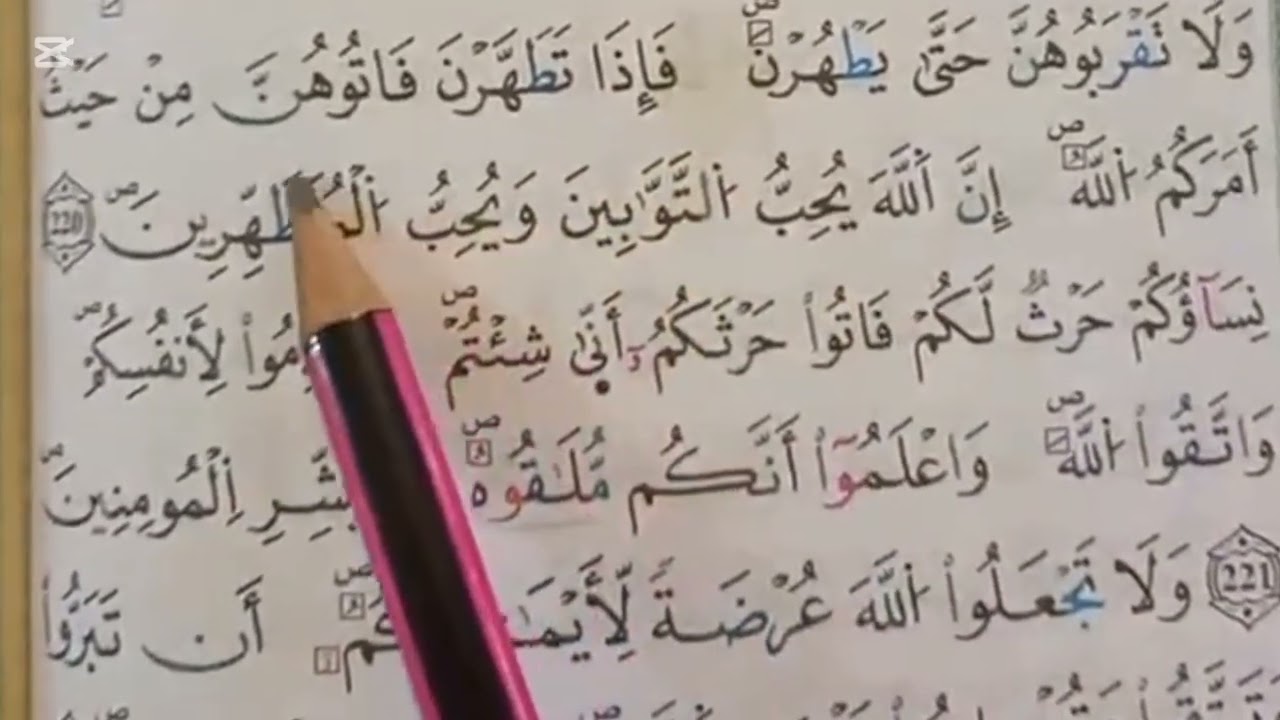 وَلَا تَقْرَبُوهُنَّ حَتَّىٰ يَطْهُرْنَ فَإِذَا تَطَهَّرْنَ فَاتُوهُنَّ مِنْ حَيْثُ
أَمَرَكُمُ اُللَّهُ إِنَّ اَللَّهَ يُحِبُّ اُلتَّوَّٰبِينَ وَيُحِبُّ 220
نِسَآؤُكُمْ حَرْثٞ لَّكُمْ فَاتُواْ حَرْثَكُمُۥٓ أَنّ۪ىٰ شِئْتُمْ لِأَنفُسِكُمْ
وَاتَّقُواْ اُللَّهَ وَاعْلَمُوٓاْ أَنَّكُم مُّلَٰقُوهُ اِلْمُومِنِينَ
221 وَلَا تَجْعَلُواْ اُللَّهَ عُرْضَةٗ أَن تَبَرُّواْ